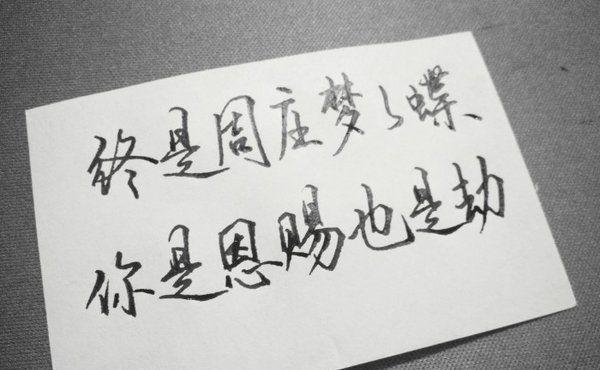 终是周庄梦了蝶、
你是恩赐也是劫